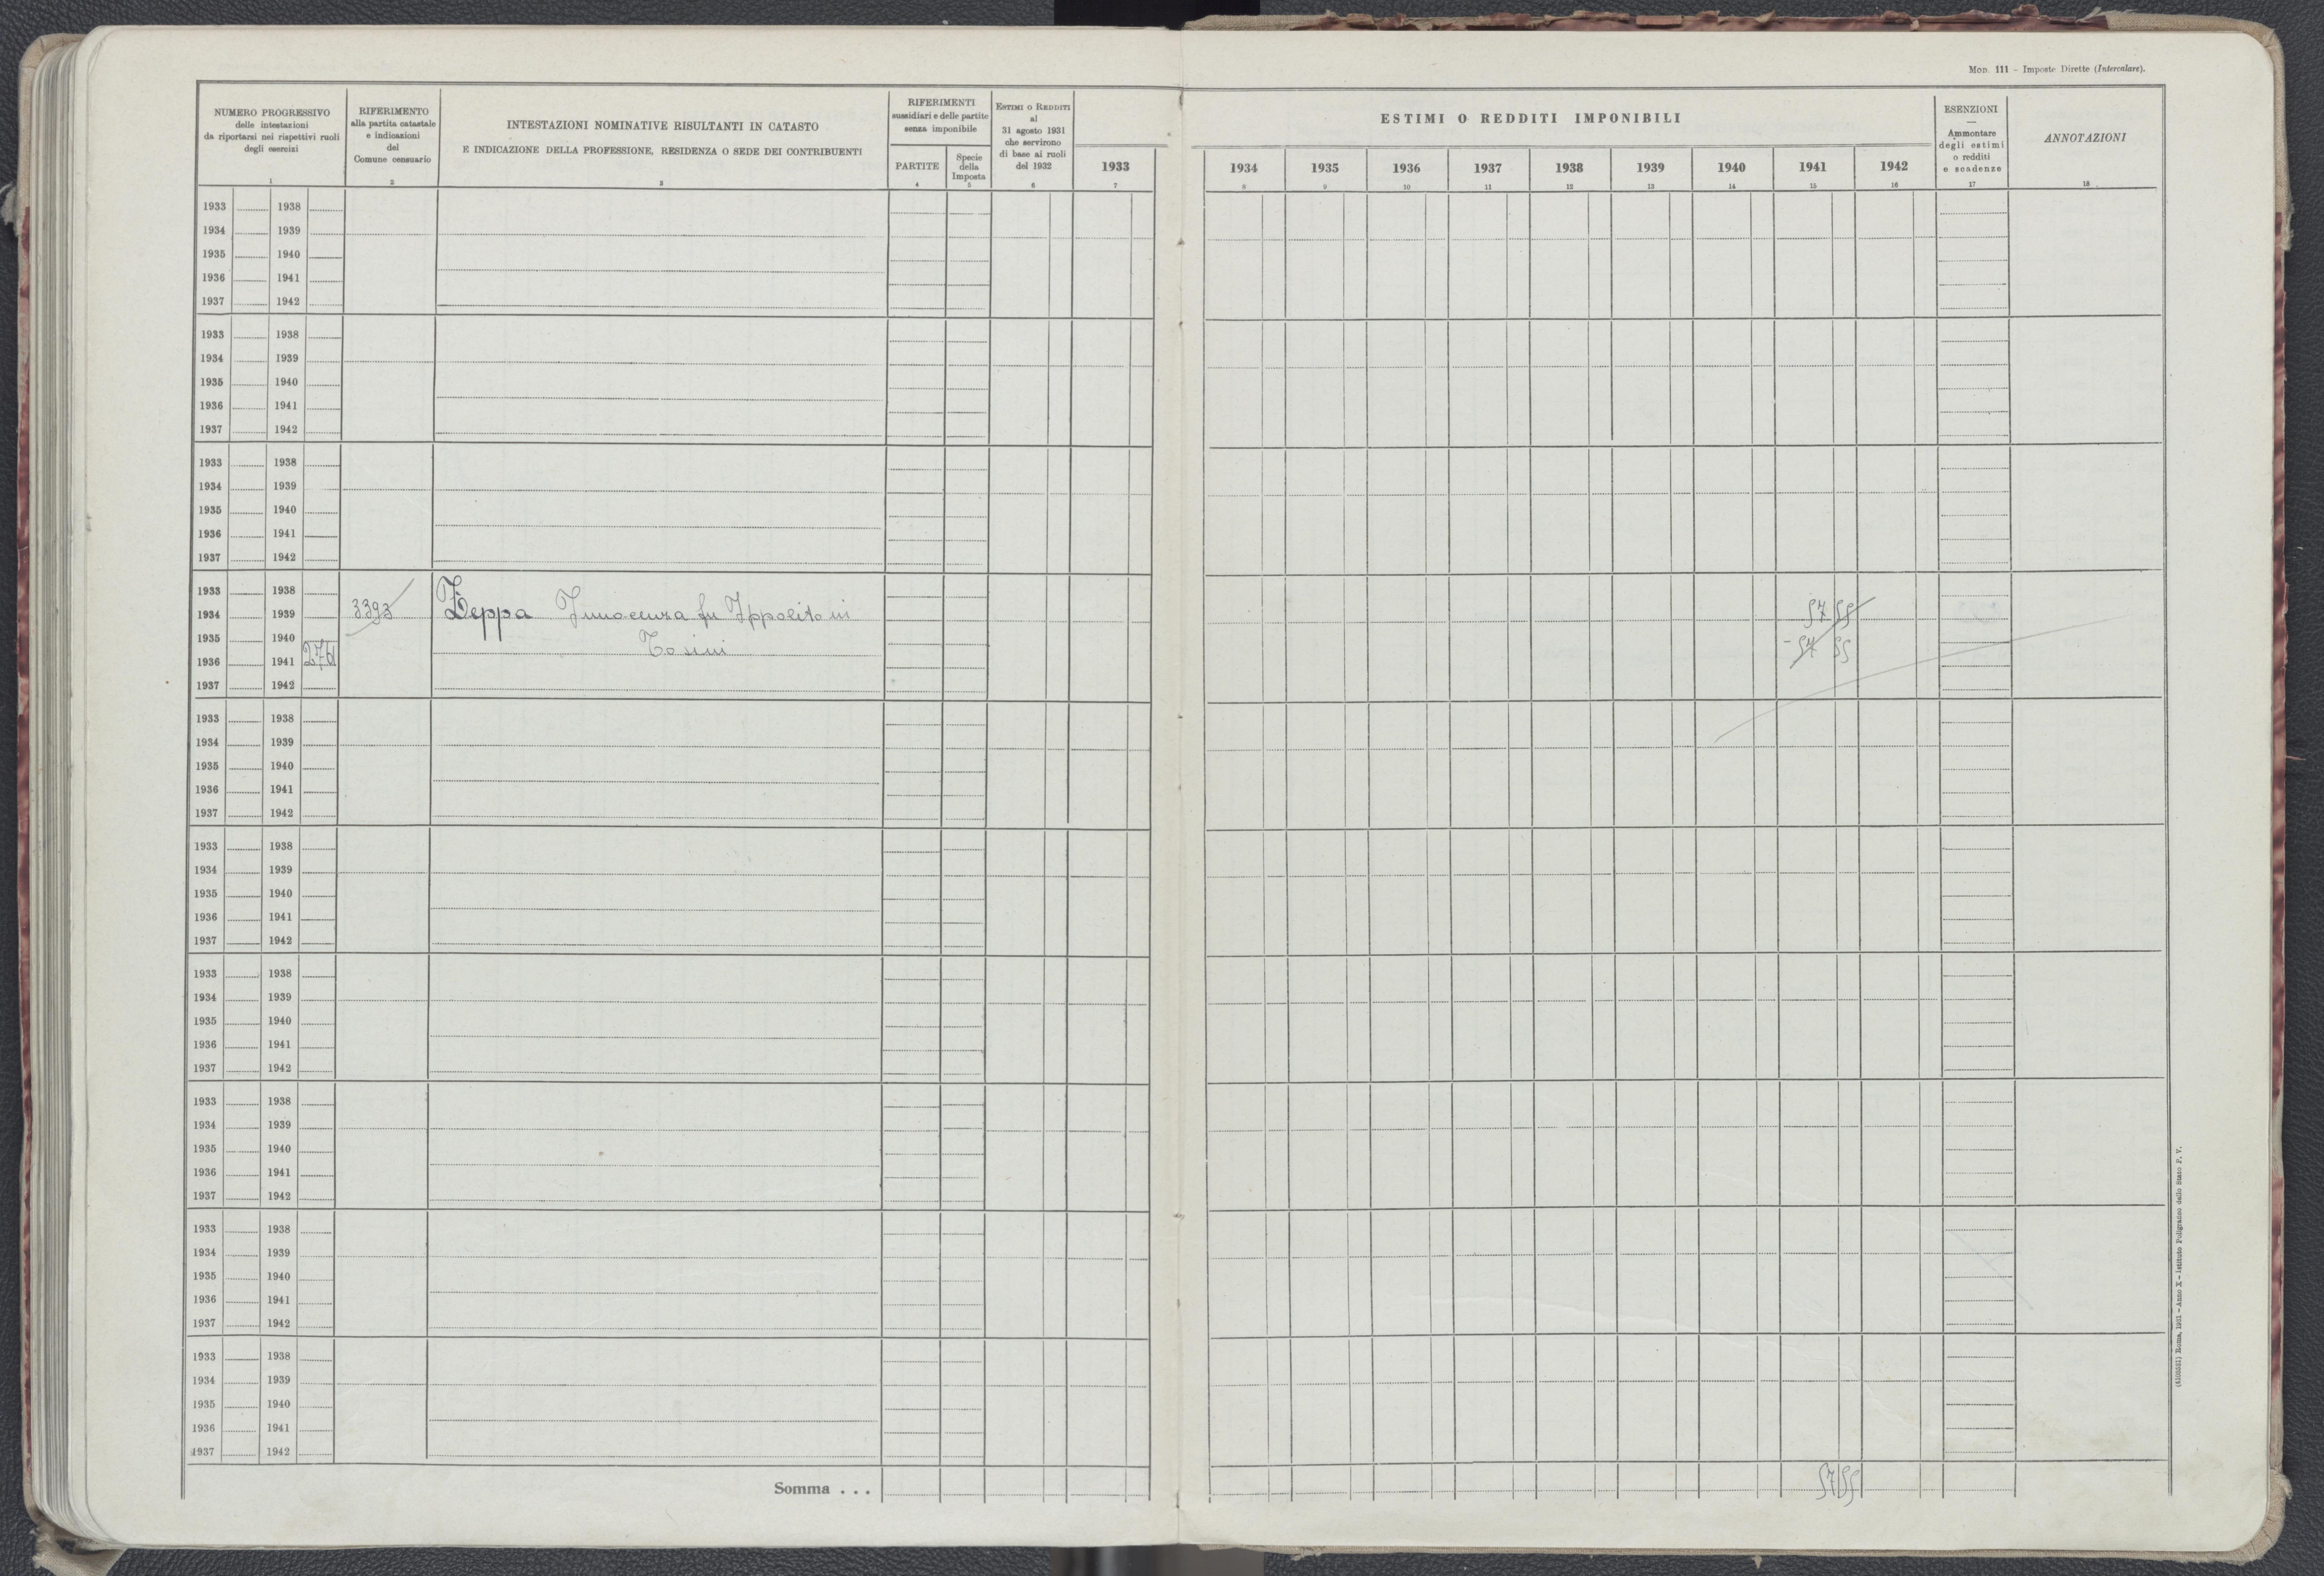 Mod. 111 – Imposte Dirette (Intercalare).
NUMERO PROGRESSIVO
delle intestazioni
da riportarsi nei rispettivi ruoli
degli esercizi
1
RIFERIMENTO
alla partita catastale
e indicazioni
del
Comune censuario
2
INTESTAZIONI NOMINATIVE RISULTANTI IN CATASTO
E INDICAZIONE DELLA PROFESSIONE, RESIDENZA O SEDE DEI CONTRIBUENTI
3
RIFERIMENTI
sussidiari e delle partite
senza imponibile
PARTITE
4
Specie
della
Imposta
5
Estimi o Redditi
al
31 agosto 1931
che servirono
di base ai ruoli
del 1932
6
1933
7
ESTIMI O REDDITI IMPONIBILI
1934 1935 1936 1937 1938 1939 1940 1941 1942
8 9 10 11 12 13 14 15 16
ESENZIONI
—
Ammontare
degli estimi
o redditi
e scadenze
17
ANNOTAZIONI
18
1933 1938
1934 1939
1935 1940
1936 1941
1937 1942
1933 1938
1934 1939
1935 1940
1936 1941
1937 1942
1933 1938
1934 1939
1935 1940
1936 1941
1937 1942
1933 1938
1934 1939 3393 Zeppa Innocenza fu Ippolito in 57 55
1935 1940 Tosini - 57 55
1936 1941 276
1937 1942
1933 1938
1934 1939
1935 1940
1936 1941
1937 1942
1933 1938
1934 1939
1935 1940
1936 1941
1937 1942
1933 1938
1934 1939
1935 1940
1936 1941
1937 1942
1933 1938
1934 1939
1935 1940
1936 1941
1937 1942
1933 1938
1934 1939
1935 1940
1936 1941
1937 1942
1933 1938
1934 1939
1935 1940
1936 1941
1937 1942
Somma . . . 57 55
Roma, 1931 – Anno X – Istituto Poligrafico dello Stato P. V.